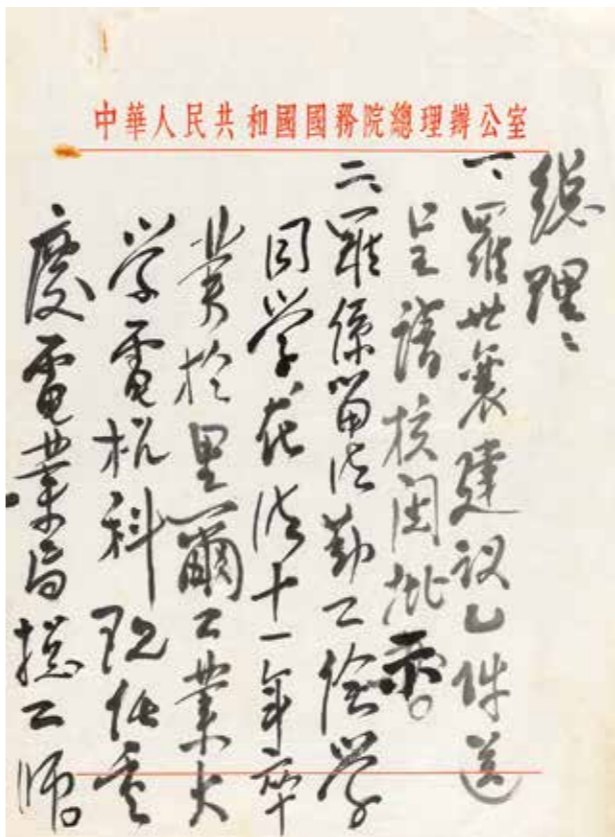 中華人民共和國國務院總理辦公室
總理：
一、羅世襄建议乙件送
呈請核閱批示。
二、羅係留法勤工儉学
同学，在法十一年卒
業於里爾工業大
学電机科現任重
慶電業局總工师。